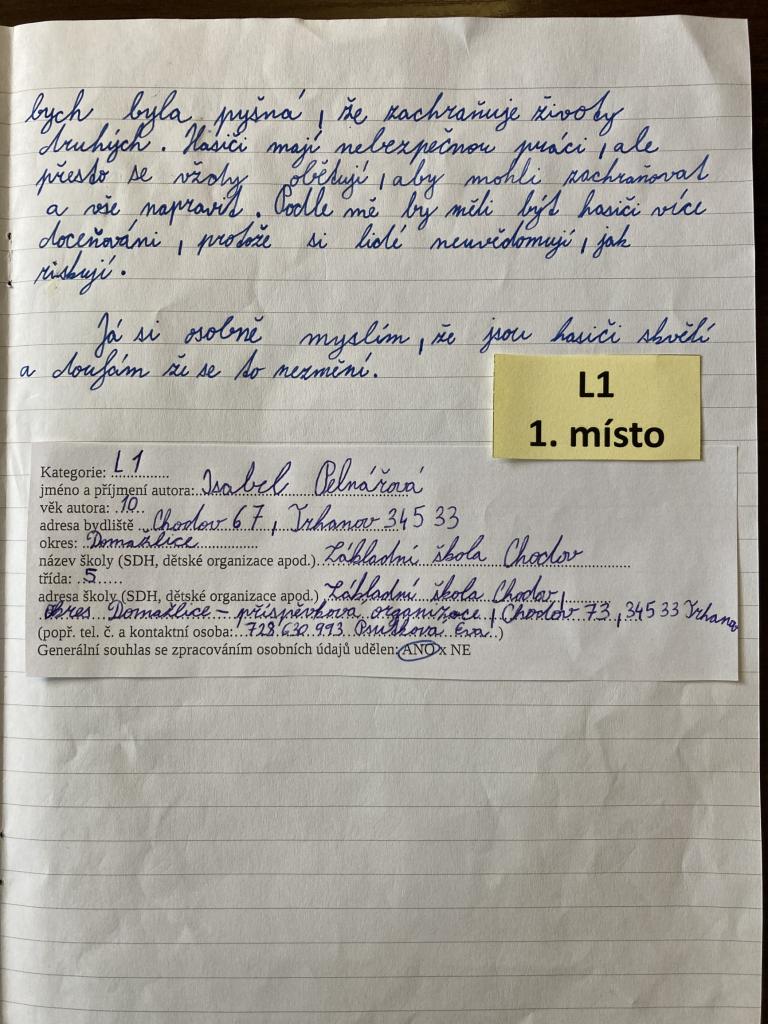 bych byla pyšná, že zachraňuje životy
druhých. Hasiči mají nebezpečnou práci, ale
přesto se vždy obětují, aby mohli zachraňovat
a vše napravit. Podle mě by měli být hasiči více
doceňováni, protože si lidé neuvědomují, jak
riskují.
Já si osobně myslím, že jsou hasiči skvělí
a doufám že se to nezmění.
L1
1. místo
Kategorie: L1
jméno a příjmení autora: Isabel Pelnářová
věk autora: 10
adresa bydliště Chodov 67, Trhanov 345 33
okres: Domažlice
název školy (SDH, dětské organizace apod.) Základní škola Chodov
třída: 5
adresa školy (SDH, dětské organizace apod.) Základní škola Chodov,
okres Domažlice – příspěvková organizace, Chodov 73, 345 33 Trhanov
(popř. tel. č. a kontaktní osoba: 728 630 993 Eva)
Generální souhlas se zpracováním osobních údajů udělen: ANO x NE